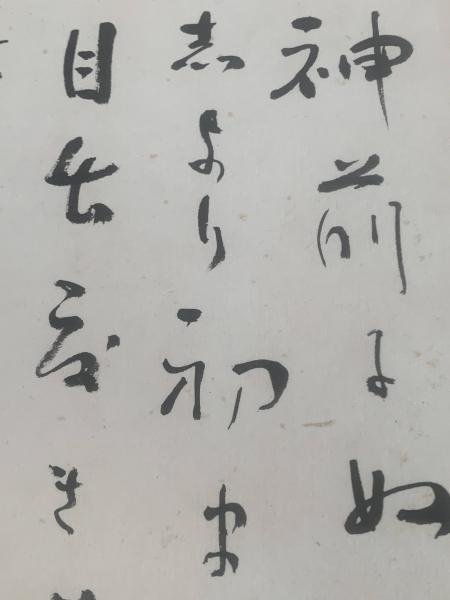 神前にぬ
志より初
目出度き